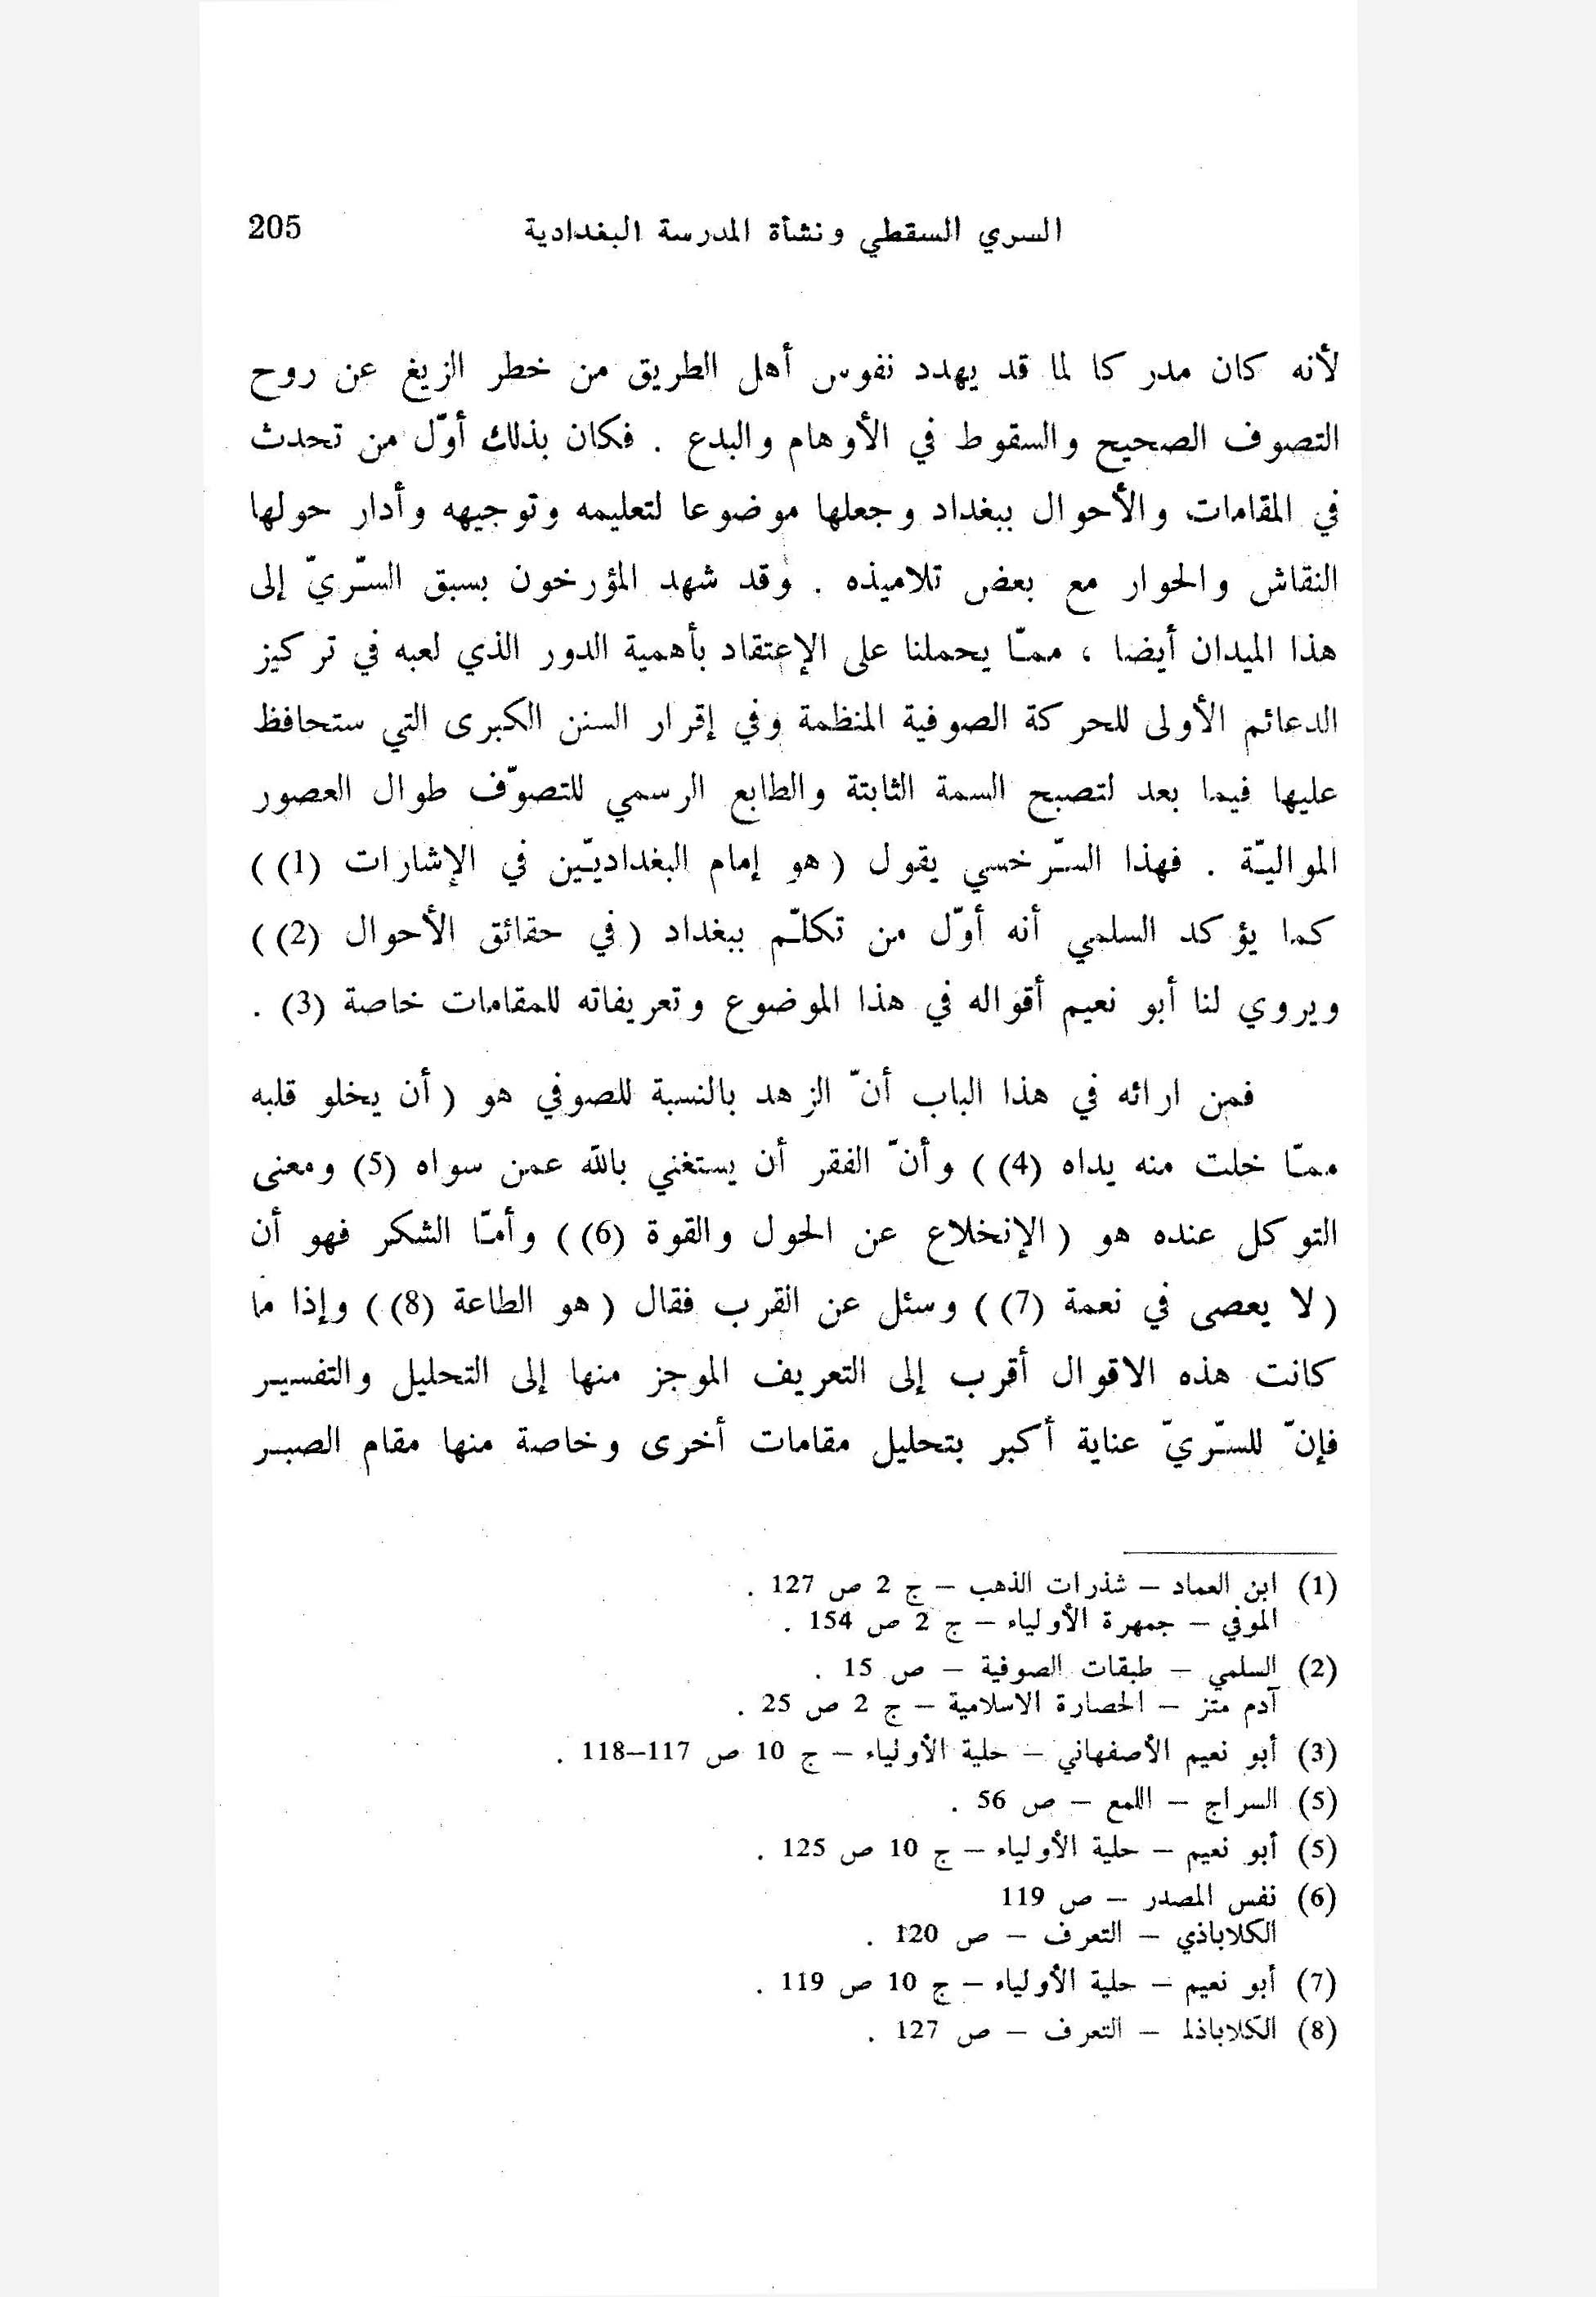 السري السقطي ونشأة المدرسة البغدادية 205
لأنه كان مدركا لما قد يهدد نفوس أهل الطريق من خطر الزيغ عن روح
التصوف الصحيح والسقوط في الأوهام والبدع . فكان بذلك أوّل من تحدث
في المقامات والأحوال ببغداد وجعلها موضوعا لتعليمه وتوجيهه وأدار حولها
النقاش والحوار مع بعض تلاميذه . وقد شهد المؤرخون بسبق السّريّ إلى
هذا الميدان أيضا ، ممّا يحملنا على الإعتقاد بأهمية الدور الذي لعبه في تركيز
الدعائم الأولى للحركة الصوفية المنظمة وفي إقرار السنن الكبرى التي ستحافظ
عليها فيما بعد لتصبح السمة الثابتة والطابع الرسمي للتصوّف طوال العصور
المواليّة . فهذا السّرخسي يقول ( هو إمام البغداديّين في الإشارات (1) )
كما يؤكد السلمي أنه أوّل من تكلّم ببغداد ( في حقائق الأحوال (2) )
ويروي لنا أبو نعيم أقواله في هذا الموضوع وتعريفاته للمقامات خاصة (3) .
فمن ارائه في هذا الباب أنّ الزهد بالنسبة للصوفي هو ( أن يخلو قلبه
ممّا خلت منه يداه (4) ) وأنّ الفقر أن يستغني بالله عمن سواه (5) ومعنى
التوكل عنده هو ( الإنخلاع عن الحول والقوة (6) ) وأمّا الشكر فهو أن
( لا يعصى في نعمة (7) ) وسئل عن القرب فقال ( هو الطاعة (8) ) وإذا ما
كانت هذه الاقوال أقرب إلى التعريف الموجز منها إلى التحليل والتفسير
فإنّ للسّريّ عناية أكبر بتحليل مقامات أخرى وخاصة منها مقام الصبر
(1) ابن العماد – شذرات الذهب – ج 2 ص 127 .
الموفي – جمهرة الأولياء – ج 2 ص 154 .
(2) السلمي – طبقات الصوفية – ص 15 .
آدم متز – الحصارة الاسلامية – ج 2 ص 25 .
(3) أبو نعيم الأصفهاني – حلية الأولياء – ج 10 ص 117–118 .
(5) السراج – اللمع – ص 56 .
(5) أبو نعيم – حلية الأولياء – ج 10 ص 125 .
(6) نفس المصدر – ص 119
الكلاباذي – التعرف – ص 120 .
(7) أبو نعيم – حلية الأولياء – ج 10 ص 119 .
(8) الكلاباذلـ – التعرف – ص 127 .